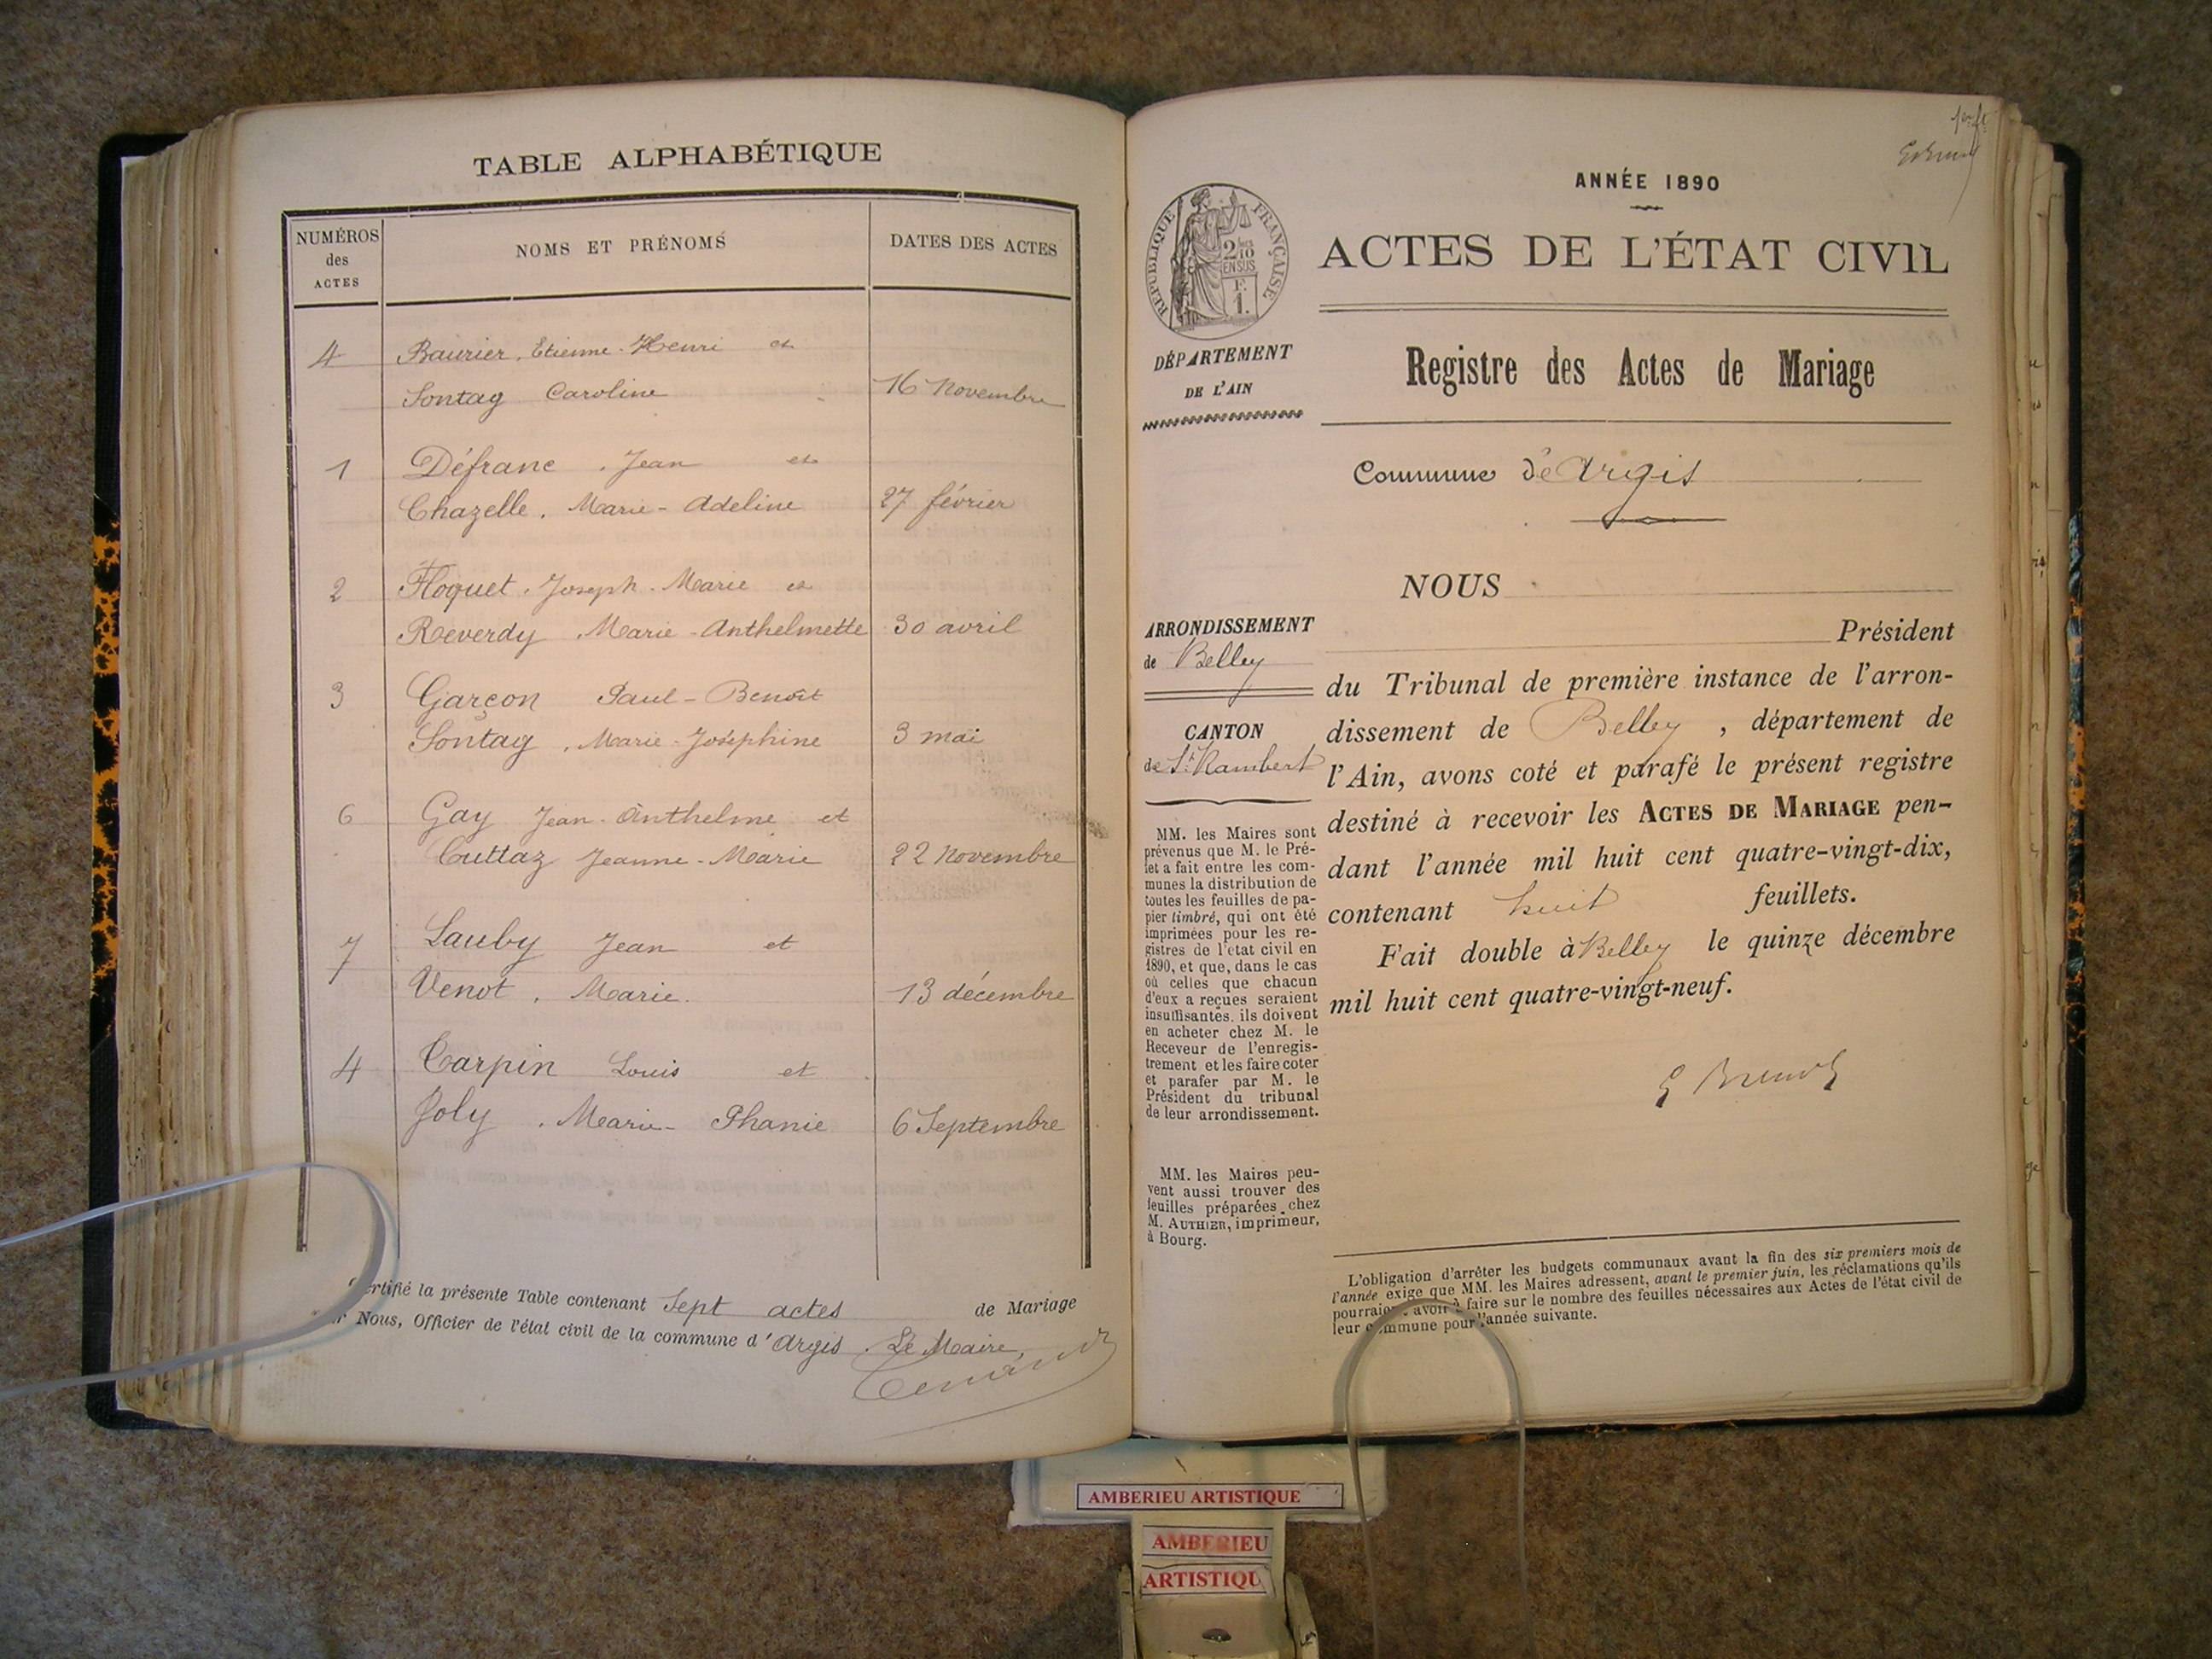 TABLE ALPHABÉTIQUE
NUMÉROS des ACTES
NOMS ET PRÉNOMS
DATES DES ACTES
4 Baurier, Etienne-Henri et
Sontag Caroline 16 novembre
1 Défranc, Jean et
Chazelle, Marie-Adeline 27 février
2 Floquet, Joseph-Marie et
Reverdy, Marie-Anthelmette 30 avril
3 Garçon Paul-Benoît
Sontag, Marie-Joséphine 3 mai
6 Gay Jean-Anthelme et
Cuttaz Jeanne-Marie 22 novembre
7 Lauby Jean et
Venot, Marie. 13 décembre
4 Carpin Louis et
Joly, Marie-Phanie 6 Septembre
rtifié la présente Table contenant Sept actes de Mariage
r Nous, Officier de l'état civil de la commune d'Argis. Le Maire,
ANNÉE 1890
RÉPUBLIQUE FRANÇAISE
2/10
EN SUS
F.
1.
ACTES DE L'ÉTAT CIVIL
DÉPARTEMENT
DE L'AIN
Registre des Actes de Mariage
Commune de Argis
ARRONDISSEMENT
de Belley
CANTON
de St. Rambert
MM. les Maires sont
prévenus que M. le Pré-
fet a fait entre les com-
munes la distribution de
toutes les feuilles de pa-
pier timbré, qui ont été
imprimées pour les re-
gistres de l'état civil en
1890, et que, dans le cas
où celles que chacun
d'eux a reçues seraient
insuffisantes, ils doivent
en acheter chez M. le
Receveur de l'enregis-
trement et les faire coter
et parafer par M. le
Président du tribunal
de leur arrondissement.
MM. les Maires peu-
vent aussi trouver des
feuilles préparées chez
M. AUTHIER, imprimeur,
à Bourg.
NOUS
Président
du Tribunal de première instance de l'arron-
dissement de Belley, département de
l'Ain, avons coté et parafé le présent registre
destiné à recevoir les ACTES DE MARIAGE pen-
dant l'année mil huit cent quatre-vingt-dix,
contenant huit feuillets.
Fait double à Belley le quinze décembre
mil huit cent quatre-vingt-neuf.
L'obligation d'arrêter les budgets communaux avant la fin des six premiers mois de
l'année exige que MM. les Maires adressent, avant le premier juin, les réclamations qu'ils
pourraient avoir à faire sur le nombre des feuilles nécessaires aux Actes de l'état civil de
leur commune pour l'année suivante.
AMBERIEU ARTISTIQUE
AMBERIEU
ARTISTIQU